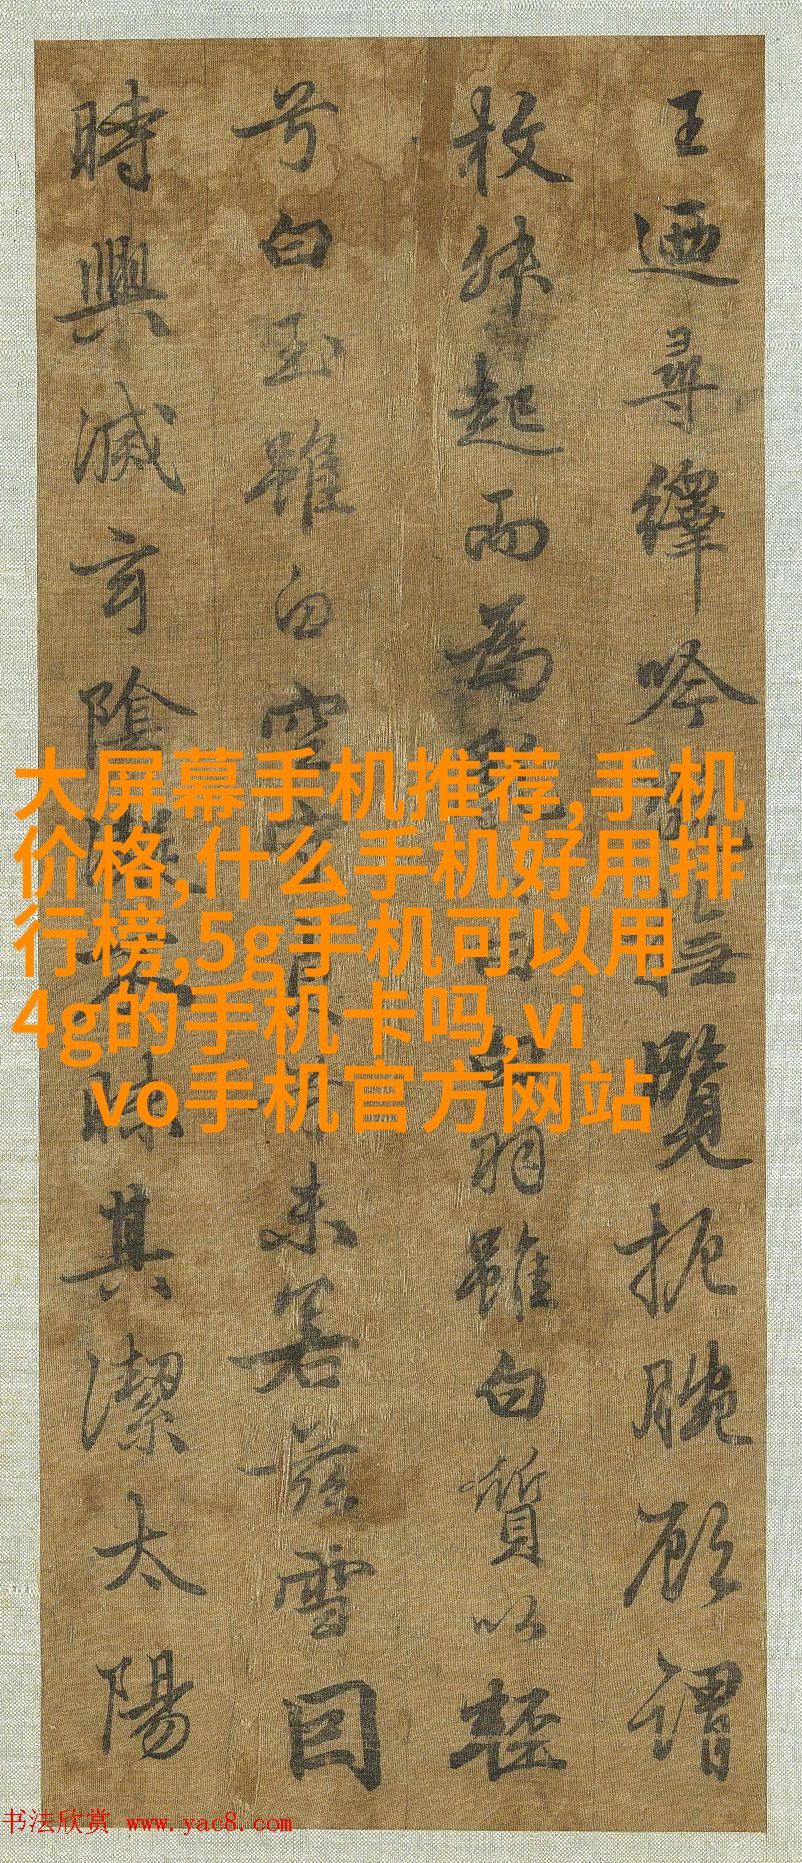 王迺尋繹吟撫覽扼腕顧謂
枚叔起而為羽雖白質以輕
兮白玉雖白空守未若茲雪因
時興滅玄陰昧其潔太陽
大屏幕手机推荐,手机
价格,什么手机好用排
行榜,5g手机可以用
4g的手机卡吗,vi
vo手机官方网站
书法欣赏 www.yac8.com